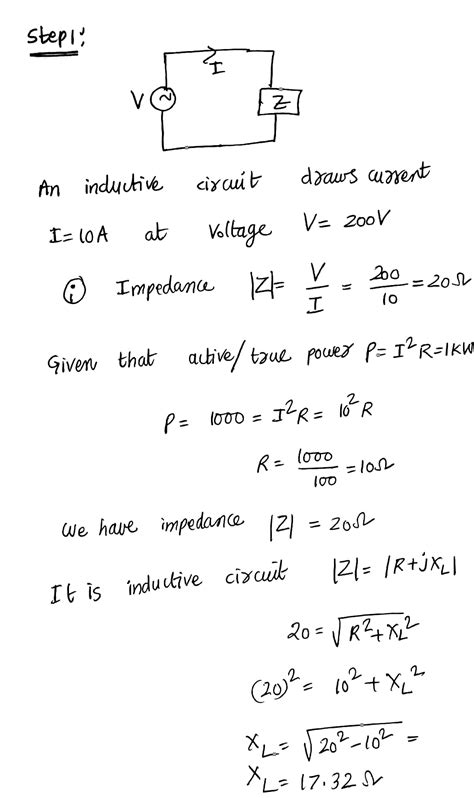 Step1:
I
V ~ Z
An inductive circuit draws current
I=10A at Voltage V= 200V
(i) Impedance |Z|= V/I = 200/10 = 20Ω
Given that active/true power P= I²R=1KW
P= 1000 = I²R= 10²R
R= 1000/100 =10Ω
We have impedance |Z| = 20Ω
It is inductive circuit |Z|= |R+jX_L|
20= √(R²+X_L²)
(20)²= 10²+X_L²
X_L= √(20²-10²) =
X_L= 17.32Ω